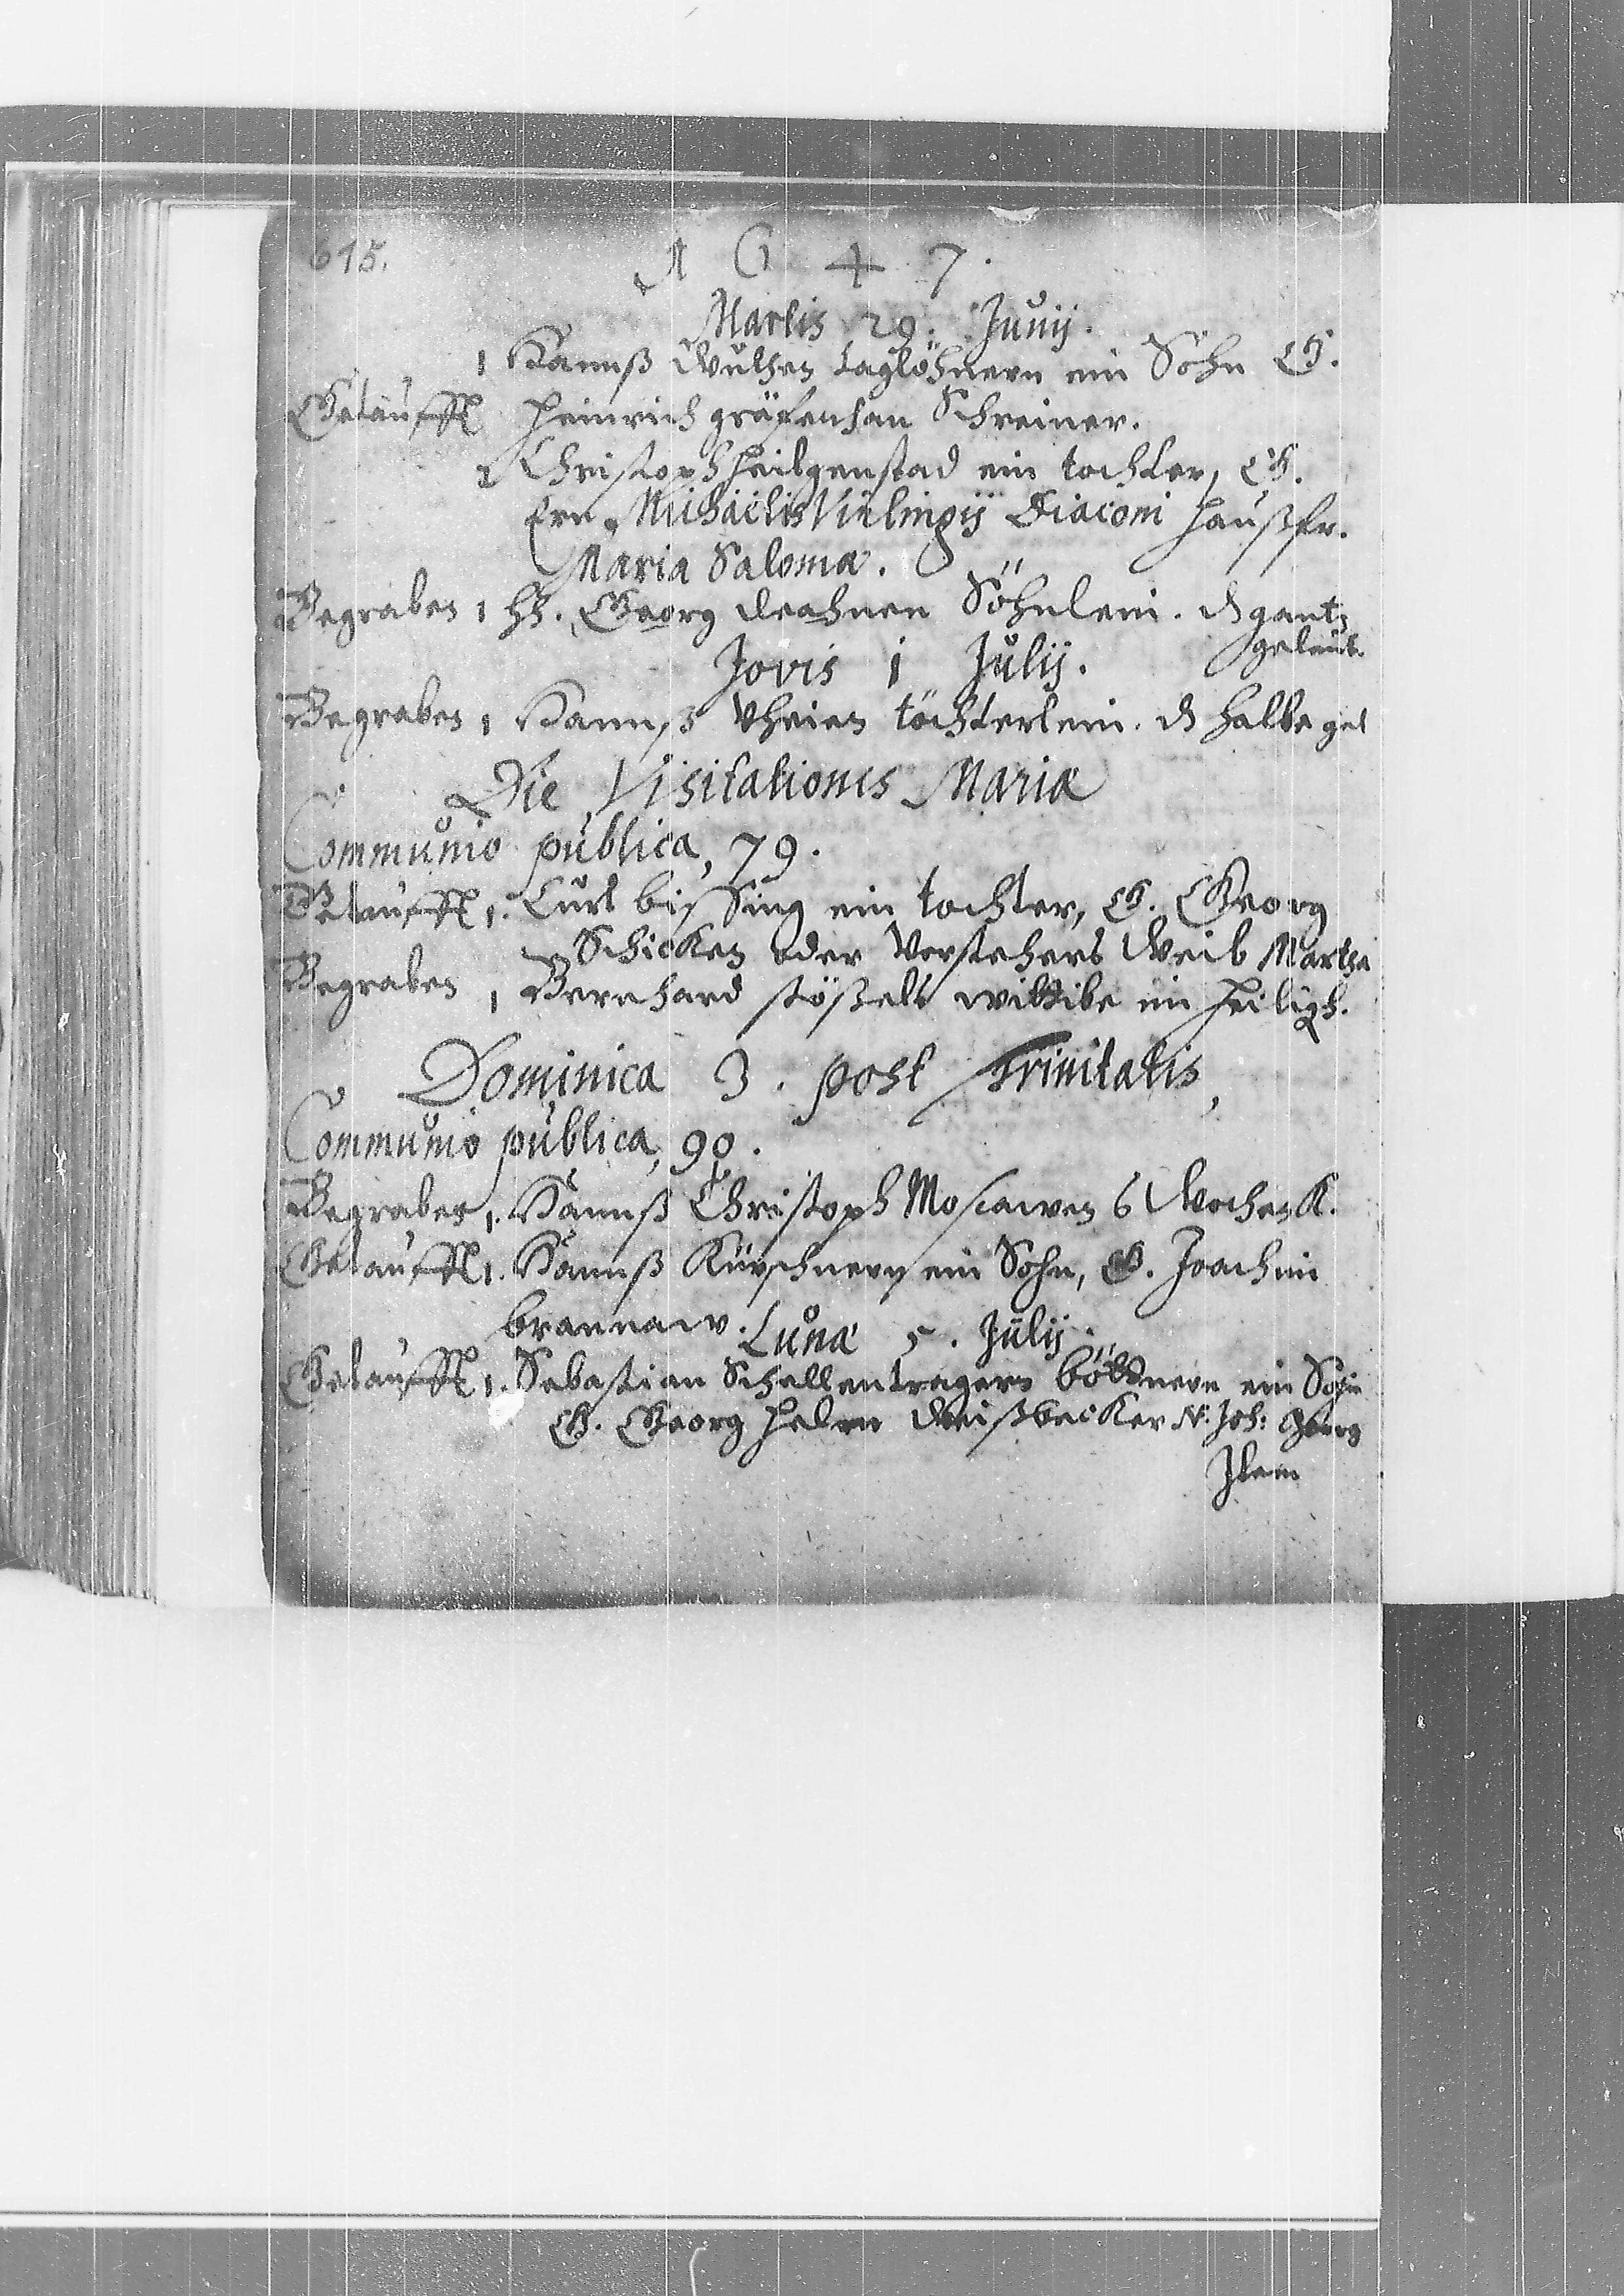 615. 1 6 4 7.
Martis 29. Junij.
1 Hannß Wuthen taglöhnern ein Sohn G.
Getaufft Heinrich gräfenhan Schreiner.
2 Christoph Heilgenstad ein tochter, G.
Ern. Michaëlis Diaconi Haußfr.
Maria Saloma.
Begraben 1 HH. Georg Söhnlein. d gantz
geleut.
Jovis 1 Julij.
Begraben 1 Hannß töchterlein. d halbe gel
Die Visitationis Mariæ
Communio publica, 79.
Getaufft 1. Curt bissing ein tochter, G. Georg
Schicken oder Vorstehers Weib Martha
Begraben 1 Bernhard stößels wittibe im Heiligh.
Dominica 3. post Trinitatis,
Communio publica, 90.
Begraben 1. Hannß Christoph Moscawen 6 Wochen K.
Getaufft 1. Hannß Kürschnern ein Sohn, G. Joachim
brannaw.
Lunæ 5. Julij.
Getaufft 1. Sebastian Schellentragern böttnern ein Sohn
G. Georg Helm Weißbecker N. Joh: Georg
Item